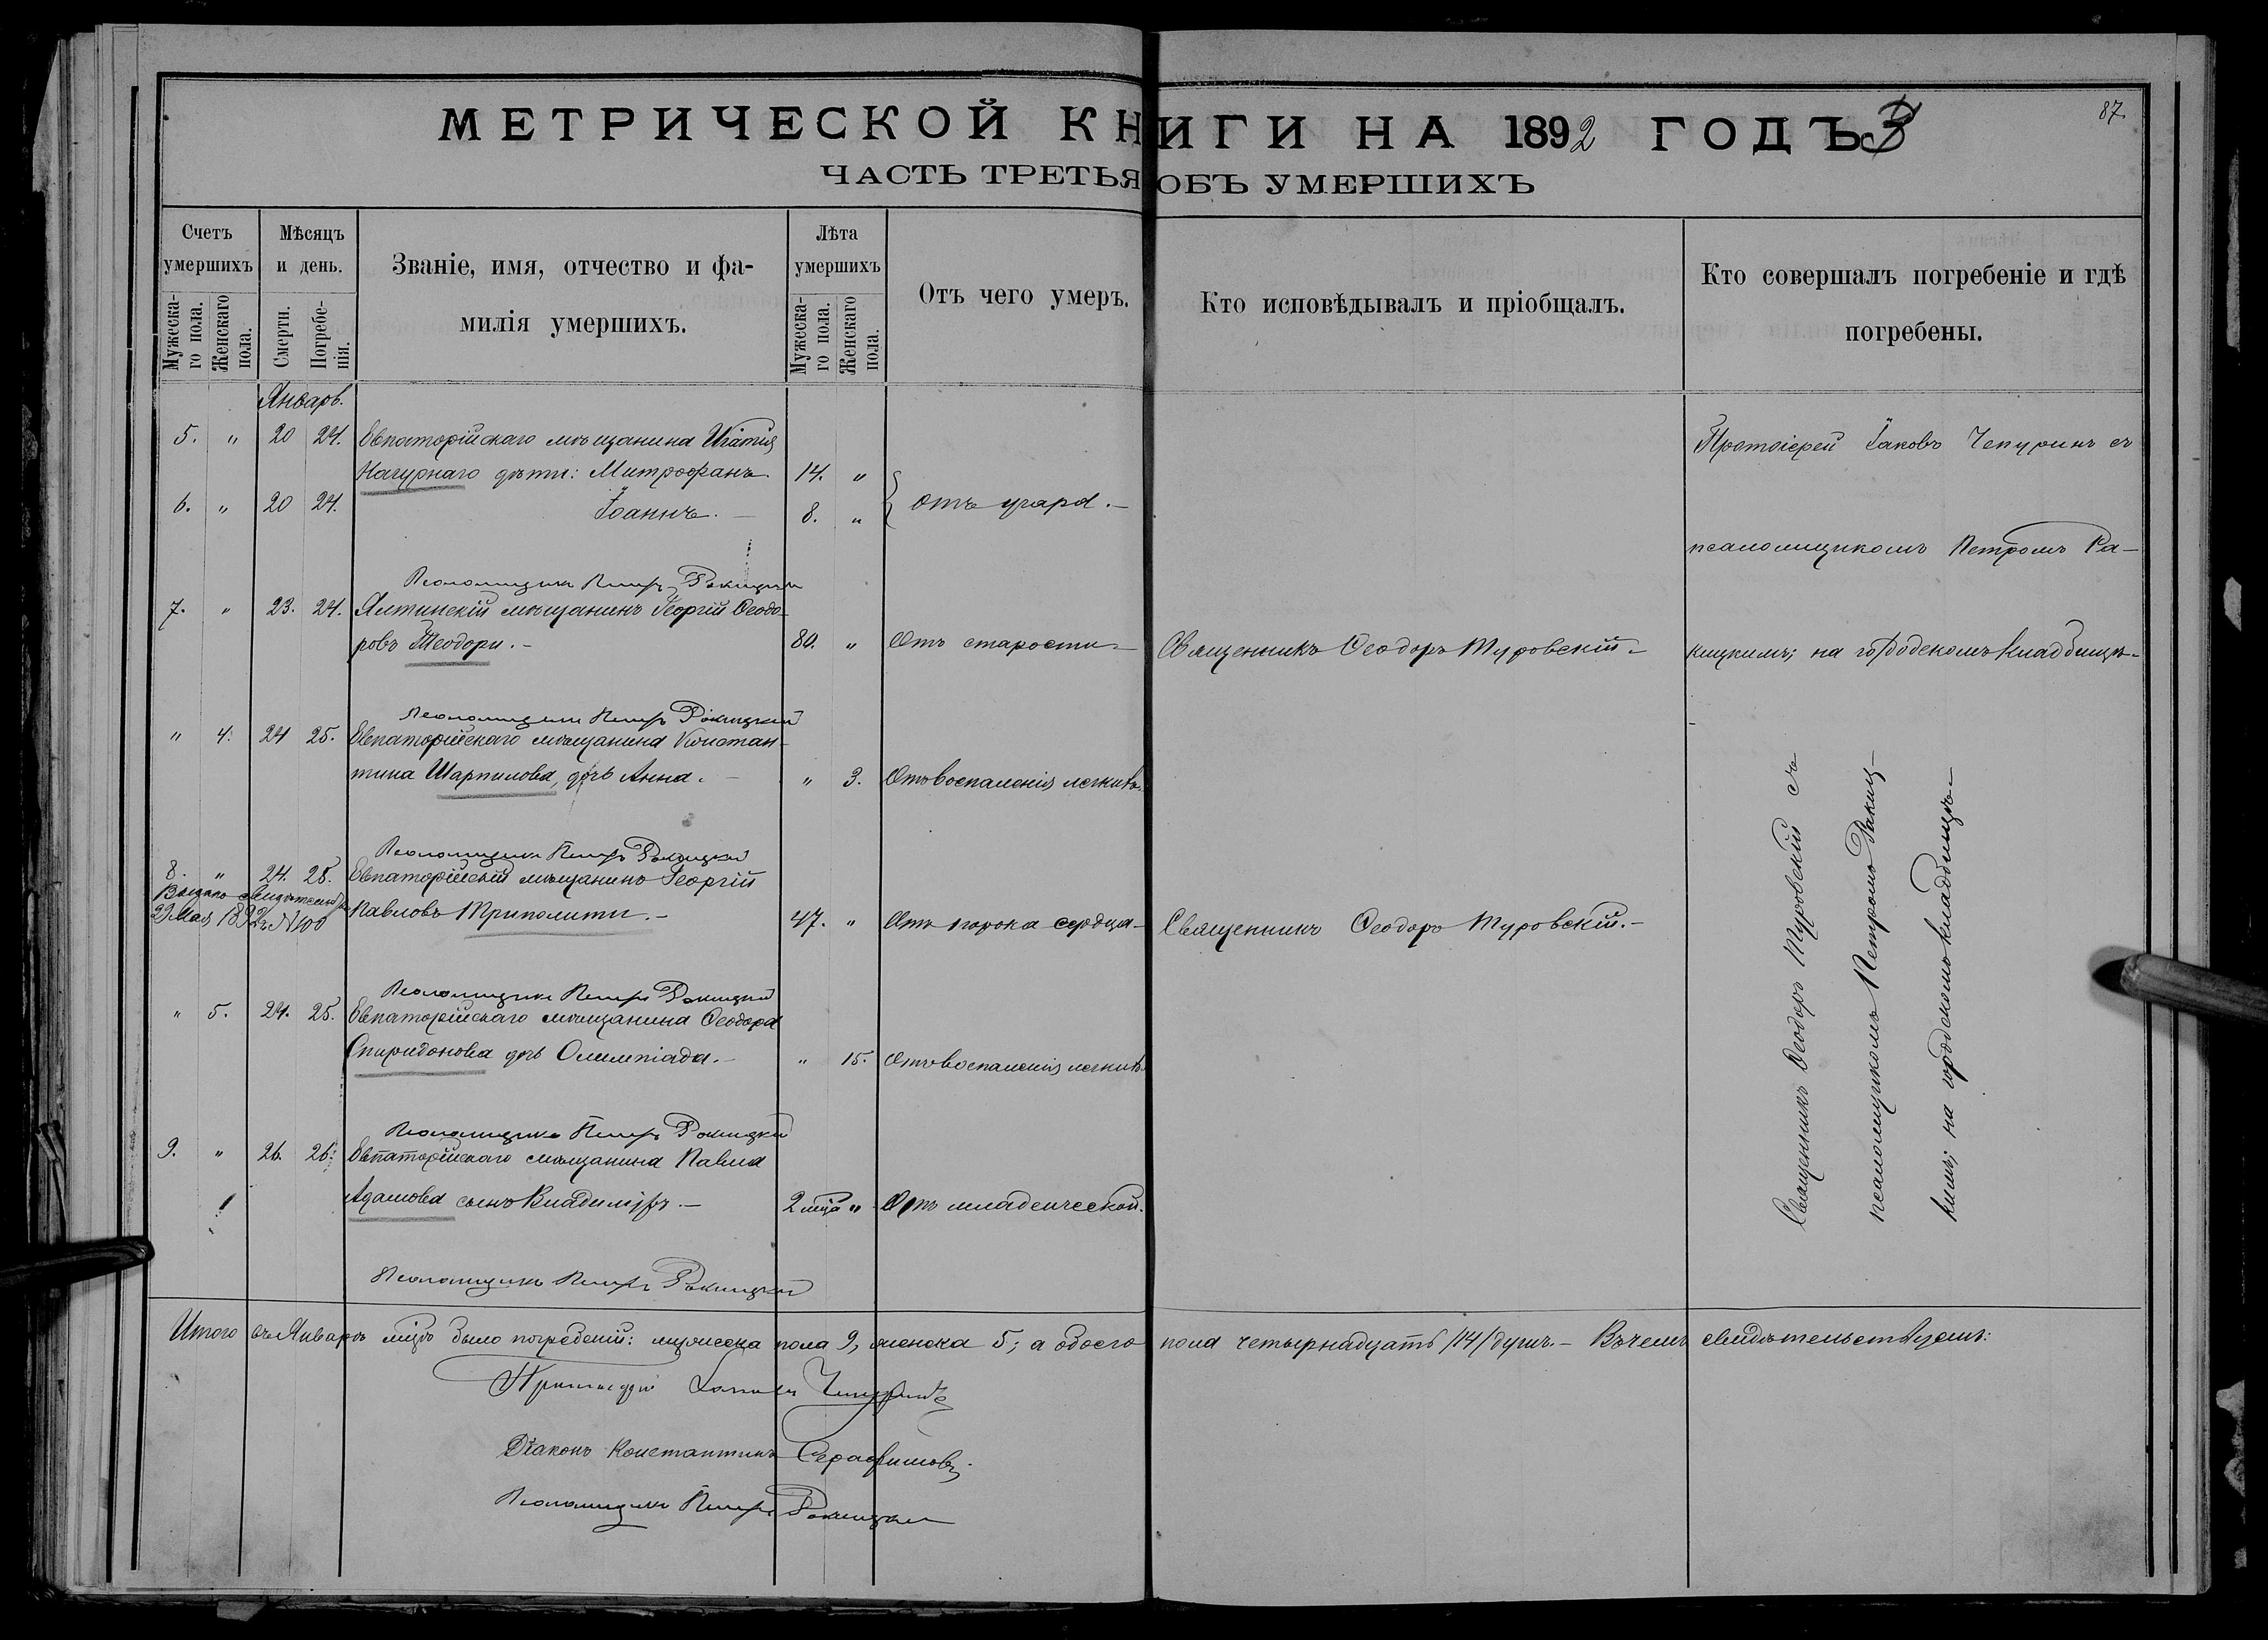 87.
МЕТРИЧЕСКОЙ КНИГИ НА 1892 ГОДЪ
ЧАСТЬ ТРЕТЬЯ ОБЪ УМЕРШИХЪ
Счетъ умершихъ
Мужескаго пола.
Женскаго пола.
Мѣсяцъ и день.
Смерти.
Погребенія.
Званіе, имя, отчество и фамилія умершихъ.
Лѣта умершихъ
Мужескаго пола.
Женскаго пола.
Отъ чего умеръ.
Кто исповѣдывалъ и пріобщалъ.
Кто совершалъ погребеніе и гдѣ погребены.
Январь.
5. " 20 24. Евпаторійскаго мѣщанина Игнатія
Нагурнаго дѣти: Митрофанъ. 14. "
6. " 20 24. Іоаннъ. – 8. " отъ угара. –
Протоіерей Іаковъ Чепуринъ съ
псаломщикомъ Петромъ Ра-
кицкимъ; на городскомъ кладбищѣ.
Псаломщикъ Петръ Ракицкій
7. " 23. 24. Ялтинскій мѣщанинъ Георгій Ѳеодо-
ровъ Теодори. – 80. " Отъ старости – Священникъ Ѳеодоръ Туровскій –
Псаломщикъ Петръ Ракицкій
" 4. 24 25. Евпаторійскаго мѣщанина Констан-
тина Шарпилова, дочь Анна. – " 3. Отъ воспаленія легкихъ.
Псаломщикъ Петръ Ракицкій
8. " 24. 25. Евпаторійскій мѣщанинъ Георгій
Павловъ Триполити. – 47. " Отъ порока сердца – Священникъ Ѳеодоръ Туровскій. –
Выдано свидѣтельство
29 Мая 1892 г. № 100
Псаломщикъ Петръ Ракицкій
" 5. 24. 25. Евпаторійскаго мѣщанина Ѳеодора
Спиридонова дочь Олимпіада. – " 15. Отъ воспаленія легкихъ.
Псаломщикъ Петръ Ракицкій
9. " 26. 26. Евпаторійскаго мѣщанина Павла
Адамова сынъ Владиміръ. – 2 мца " Отъ младенческой.
Священникъ Ѳеодоръ Туровскій съ
псаломщикомъ Петромъ Ракиц-
кимъ; на городскомъ кладбищѣ –
Псаломщикъ Петръ Ракицкій
Итого въ Январѣ мцѣ было погребеній: мужеска пола 9, женска 5; а обоего пола четырнадцать /14/ душъ. – Въ чемъ свидѣтельствуемъ:
Протоіерей Іаковъ Чепуринъ
Діаконъ Константинъ Серафимовъ.
Псаломщикъ Петръ Ракицкій